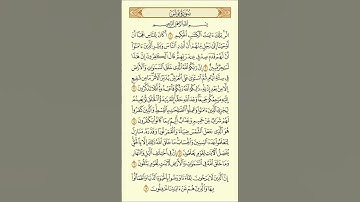 سُورَةُ يُونُسَ
بِسْمِ ٱللَّهِ ٱلرَّحْمَٰنِ ٱلرَّحِيمِ
الٓر ۚ تِلْكَ ءَايَٰتُ ٱلْكِتَٰبِ ٱلْحَكِيمِ ١ أَكَانَ لِلنَّاسِ عَجَبًا أَنْ
أَوْحَيْنَآ إِلَىٰ رَجُلٍ مِّنْهُمْ أَنْ أَنذِرِ ٱلنَّاسَ وَبَشِّرِ ٱلَّذِينَ ءَامَنُوٓا۟
أَنَّ لَهُمْ قَدَمَ صِدْقٍ عِندَ رَبِّهِمْ ۗ قَالَ ٱلْكَٰفِرُونَ إِنَّ هَٰذَا
لَسَٰحِرٌ مُّبِينٌ ٢ إِنَّ رَبَّكُمُ ٱللَّهُ ٱلَّذِى خَلَقَ ٱلسَّمَٰوَٰتِ وَٱلْأَرْضَ
فِى سِتَّةِ أَيَّامٍ ثُمَّ ٱسْتَوَىٰ عَلَى ٱلْعَرْشِ ۖ يُدَبِّرُ ٱلْأَمْرَ ۖ مَا مِن شَفِيعٍ
إِلَّا مِنۢ بَعْدِ إِذْنِهِۦ ۚ ذَٰلِكُمُ ٱللَّهُ رَبُّكُمْ فَٱعْبُدُوهُ ۚ أَفَلَا تَذَكَّرُونَ ٣
إِلَيْهِ مَرْجِعُكُمْ جَمِيعًا ۖ وَعْدَ ٱللَّهِ حَقًّا ۚ إِنَّهُۥ يَبْدَؤُا۟ ٱلْخَلْقَ ثُمَّ يُعِيدُهُۥ
لِيَجْزِىَ ٱلَّذِينَ ءَامَنُوا۟ وَعَمِلُوا۟ ٱلصَّٰلِحَٰتِ بِٱلْقِسْطِ ۚ وَٱلَّذِينَ كَفَرُوا۟
لَهُمْ شَرَابٌ مِّنْ حَمِيمٍ وَعَذَابٌ أَلِيمٌۢ بِمَا كَانُوا۟ يَكْفُرُونَ ٤
هُوَ ٱلَّذِى جَعَلَ ٱلشَّمْسَ ضِيَآءً وَٱلْقَمَرَ نُورًا وَقَدَّرَهُۥ مَنَازِلَ
لِتَعْلَمُوا۟ عَدَدَ ٱلسِّنِينَ وَٱلْحِسَابَ ۚ مَا خَلَقَ ٱللَّهُ ذَٰلِكَ إِلَّا بِٱلْحَقِّ ۚ
يُفَصِّلُ ٱلْءَايَٰتِ لِقَوْمٍ يَعْلَمُونَ ٥ إِنَّ فِى ٱخْتِلَٰفِ ٱلَّيْلِ وَٱلنَّهَارِ
وَمَا خَلَقَ ٱللَّهُ فِى ٱلسَّمَٰوَٰتِ وَٱلْأَرْضِ لَءَايَٰتٍ لِّقَوْمٍ يَتَّقُونَ ٦
إِنَّ ٱلَّذِينَ لَا يَرْجُونَ لِقَآءَنَا وَرَضُوا۟ بِٱلْحَيَوٰةِ ٱلدُّنْيَا وَٱطْمَأَنُّوا۟
بِهَا وَٱلَّذِينَ هُمْ عَنْ ءَايَٰتِنَا غَٰفِلُونَ ٧